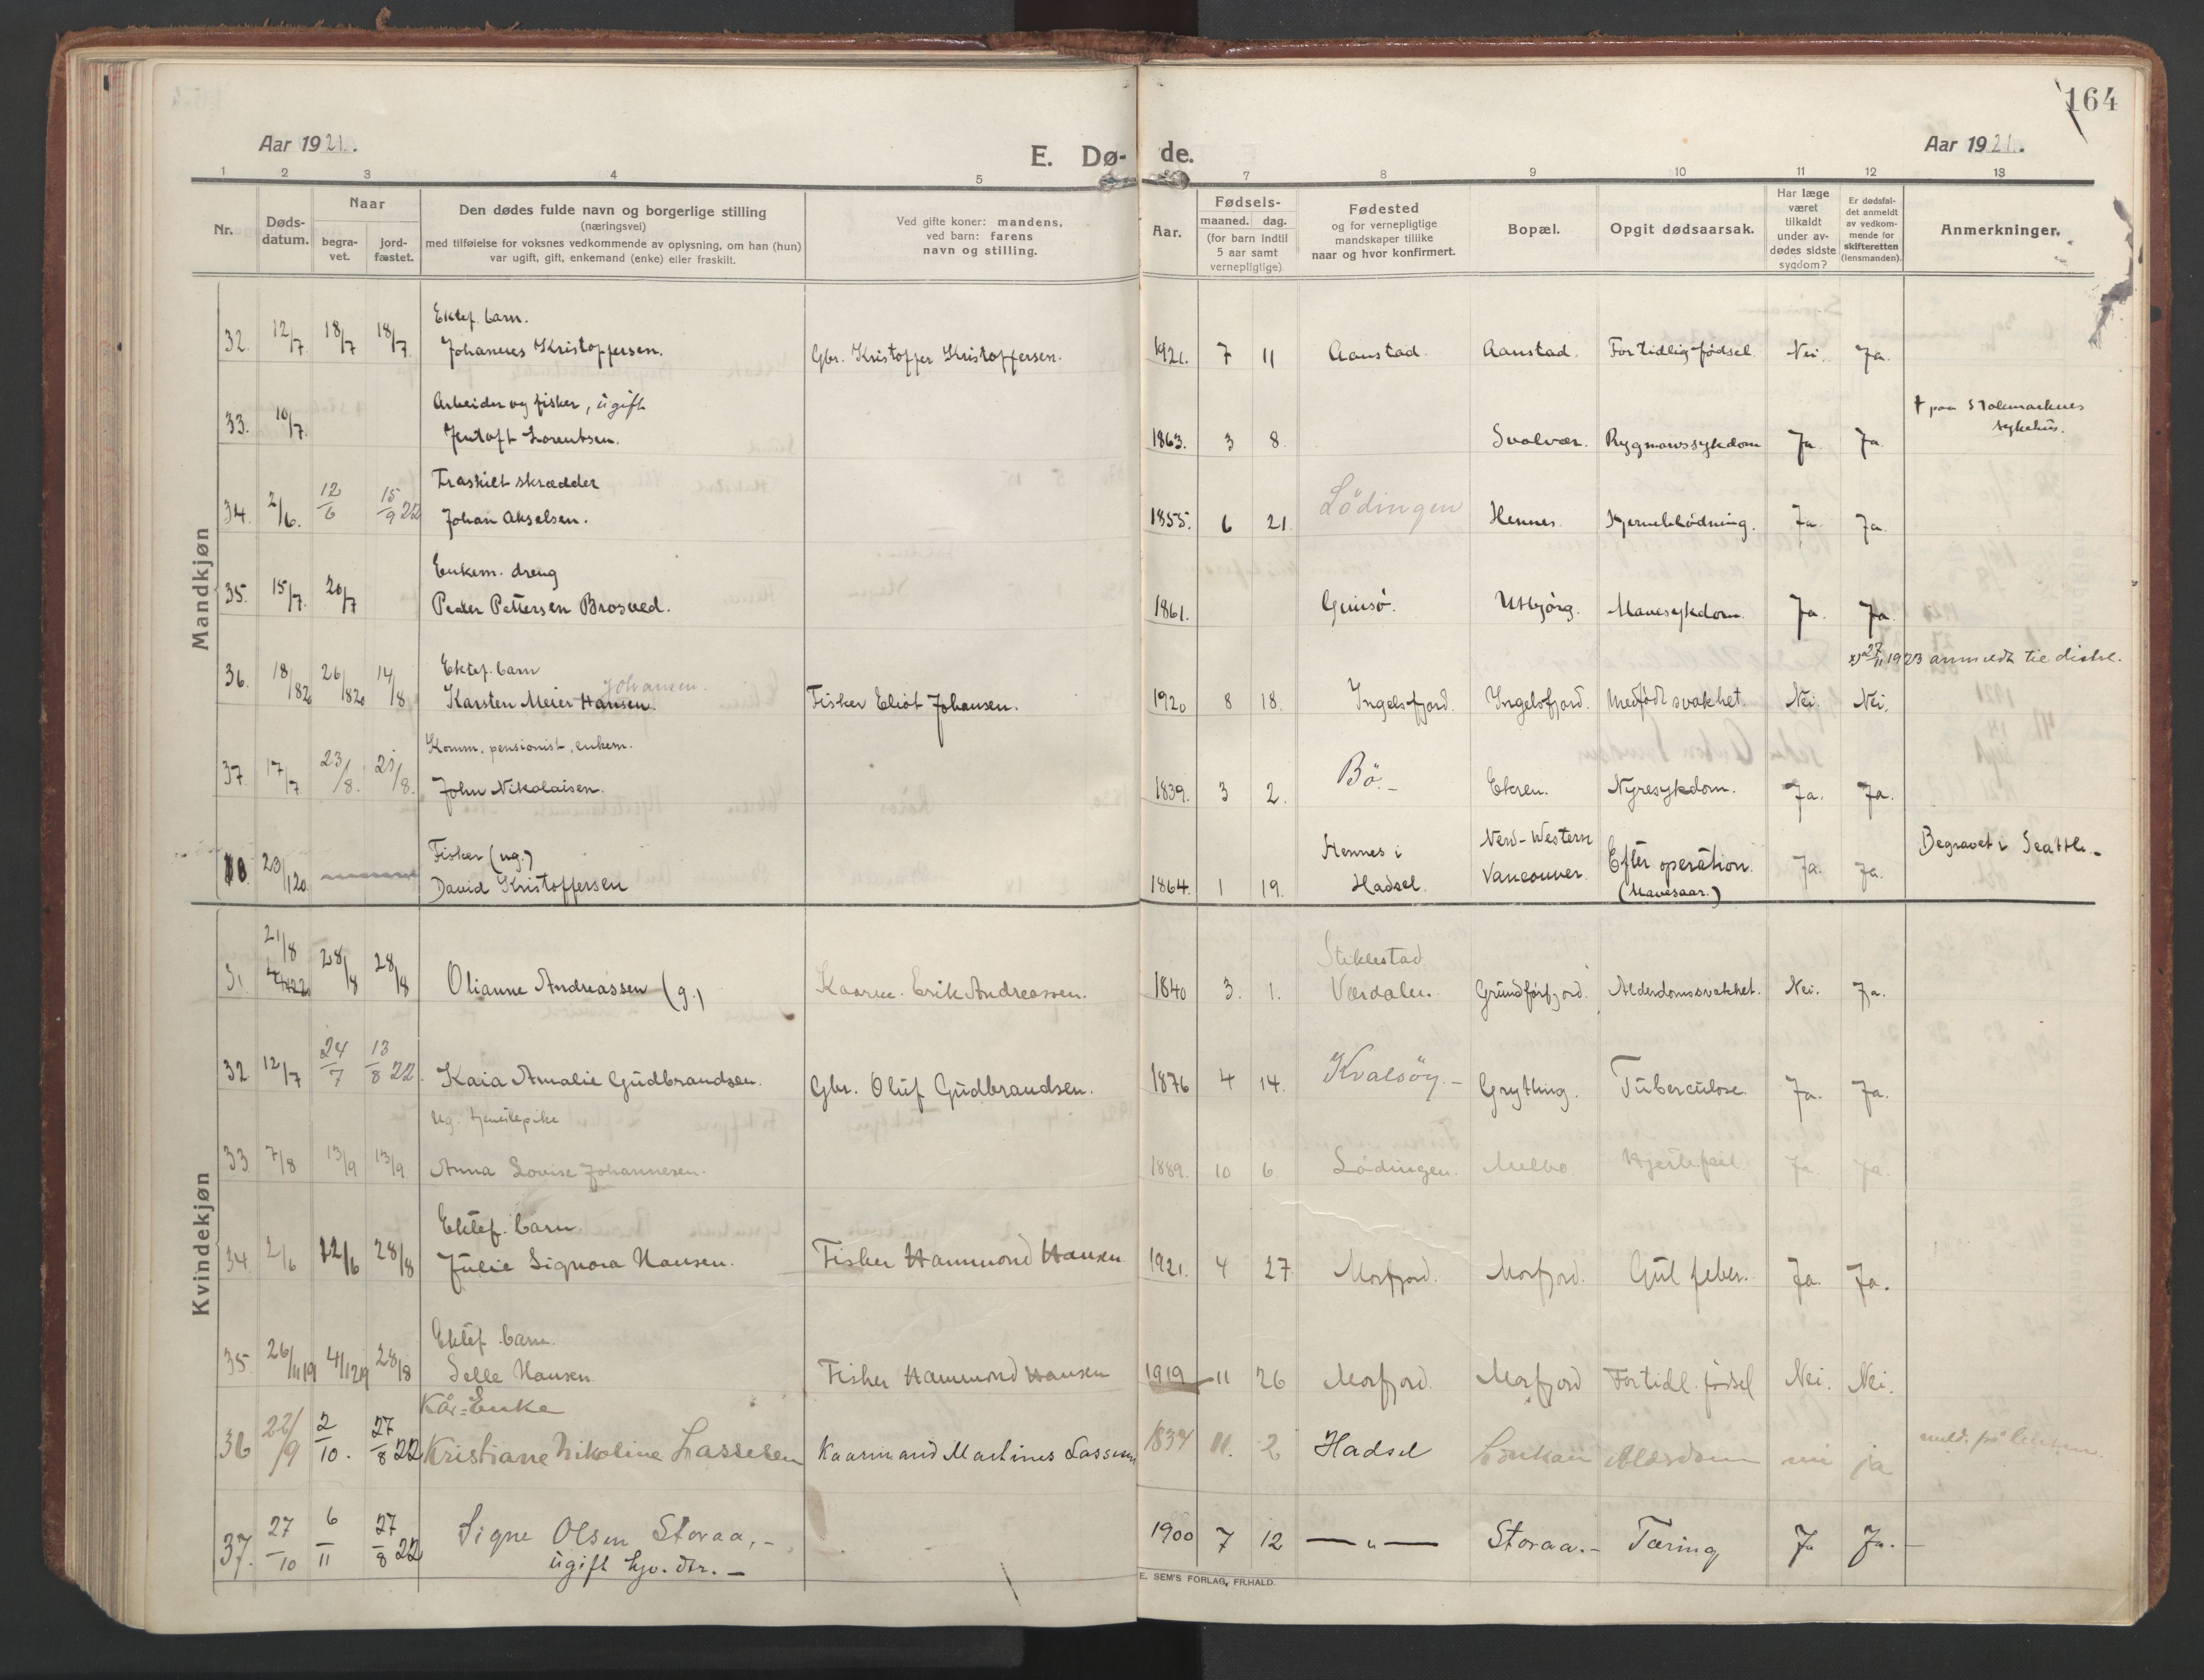 164
Aar 1921.
E. Dø- de.
Aar 1921.
1 2 3 4 5 7 8 9 10 11 12 13
Nr.
Døds-datum.
Naar
begra-vet.
jord-fæstet.
Den dødes fulde navn og borgerlige stilling
(næringsvei)
med tilføielse for voksnes vedkommende av oplysning, om han (hun)
var ugift, gift, enkemand (enke) eller fraskilt.
Ved gifte koner: mandens,
ved barn: farens
navn og stilling.
Aar.
Fødsels-
maaned. dag.
(for barn indtil
5 aar samt
vernepligtige)
Fødested
og for vernepligtige
mandskaper tillike
naar og hvor konfirmert.
Bopæl.
Opgit dødsaarsak.
Har læge
været
tilkaldt
under av-
dødes sidste
sygdom?
Er dødsfal-
det anmeldt
av vedkom-
mende for
skifteretten
(lensmanden).
Anmerkninger.
Mandkjøn
Ektef. barn.
32. 12/7 18/7 18/7 Johannes Kristoffersen. Gbr. Kristoffer Kristoffersen. 1921. 7 11 Aanstad. Aanstad. For tidlig fødsel. Nei. Ja.
Arbeider og fisker, ugift † paa Stokmarknes
sykehus.
33. 10/7. Jentoft Lorentsen. 1863. 3 8. Svolvær. Rygmarvssykdom Ja. Ja.
Fraskilt skrædder
34. 2/6. 12/6 15/9 22 Johan Akselsen. 1855. 6 21. Lödingen Hennes. Hjerneblödning. Ja. Ja.
Enkem. dreng
35. 15/7. 20/7 Peder Pettersen Brosved. 1861. Gimsö. Utbjörg. Mavesykdom. Ja. Ja.
27/11 1923 anmeldt til distr.
Ektef. barn
Johansen.
36. 18/8 20 26/8 20 14/8 Karsten Meier Hansen. Fisker Eliot Johansen. 1920 8 18. Ingelsfjord. Ingelsfjord. Medfödt svakhet. Nei. Nei.
Komm. pensionist, enkem.
37. 17/7 23/8. 21/8. John Nikolaisen. 1839. 3 2. Bö.- Ekren. Nyresykdom. Ja. Ja.
Fisker (ug.) Hennes i New-Western Begravet i Seattle.-
23/1 20. David Kristoffersen 1864. 1 19. Hadsel. Vancouver. Efter operation. Ja. Ja.
(Mavesaar.)
Kvindekjøn
21/8 Stiklestad
31. 28/8 28/8 Olianne Andreassen (g.) Kaarm. Erik Andreassen. 1840 3. 1. Værdalen. Grundforfjord. Alderdomssvakhet. Nei. Ja.
32. 12/7 24/7 13/8 22. Kaia Amalie Gudbrandsen. Gbr. Oluf Gudbrandsen. 1876 4 14. Kvalsöy.- Grytting. Tuberculose. Ja. Ja.
Ug. tjenestepike
33 7/8 13/9 13/9. Anna Lovise Johannesen. 1889. 10 6 Lödingen. Melbo. Hjertefeil. Ja. Ja.
Ektef. barn
34. 2/6 12/6 28/8 Julie Signora Hansen. Fisker Hammond Hansen 1921. 4 27 Morfjord. Morfjord. Gul feber. Ja. Ja.
Ektef. barn.
35. 26/11 19 4/12 19 28/8 Selle Hansen. Fisker Hammond Hansen 1919 11 26 Morfjord. Morfjord For tidl. födsel Nei. Nei.
Kår-Enke
36 22/9 2/10. 27/8 22 Kristiane Nikoline Lassesen Kaarmand Martinus Lassen 1834 11. 2 Hadsel Alderdom nei ja
37. 27/10 6/11 27/8 22 Signe Olsen Storaa,- 1900 7 12 — „ — Storaa.- Tæring Ja Ja.-
ugift hjv. dtr.-
E. SEM'S FORLAG, FR.HALD.